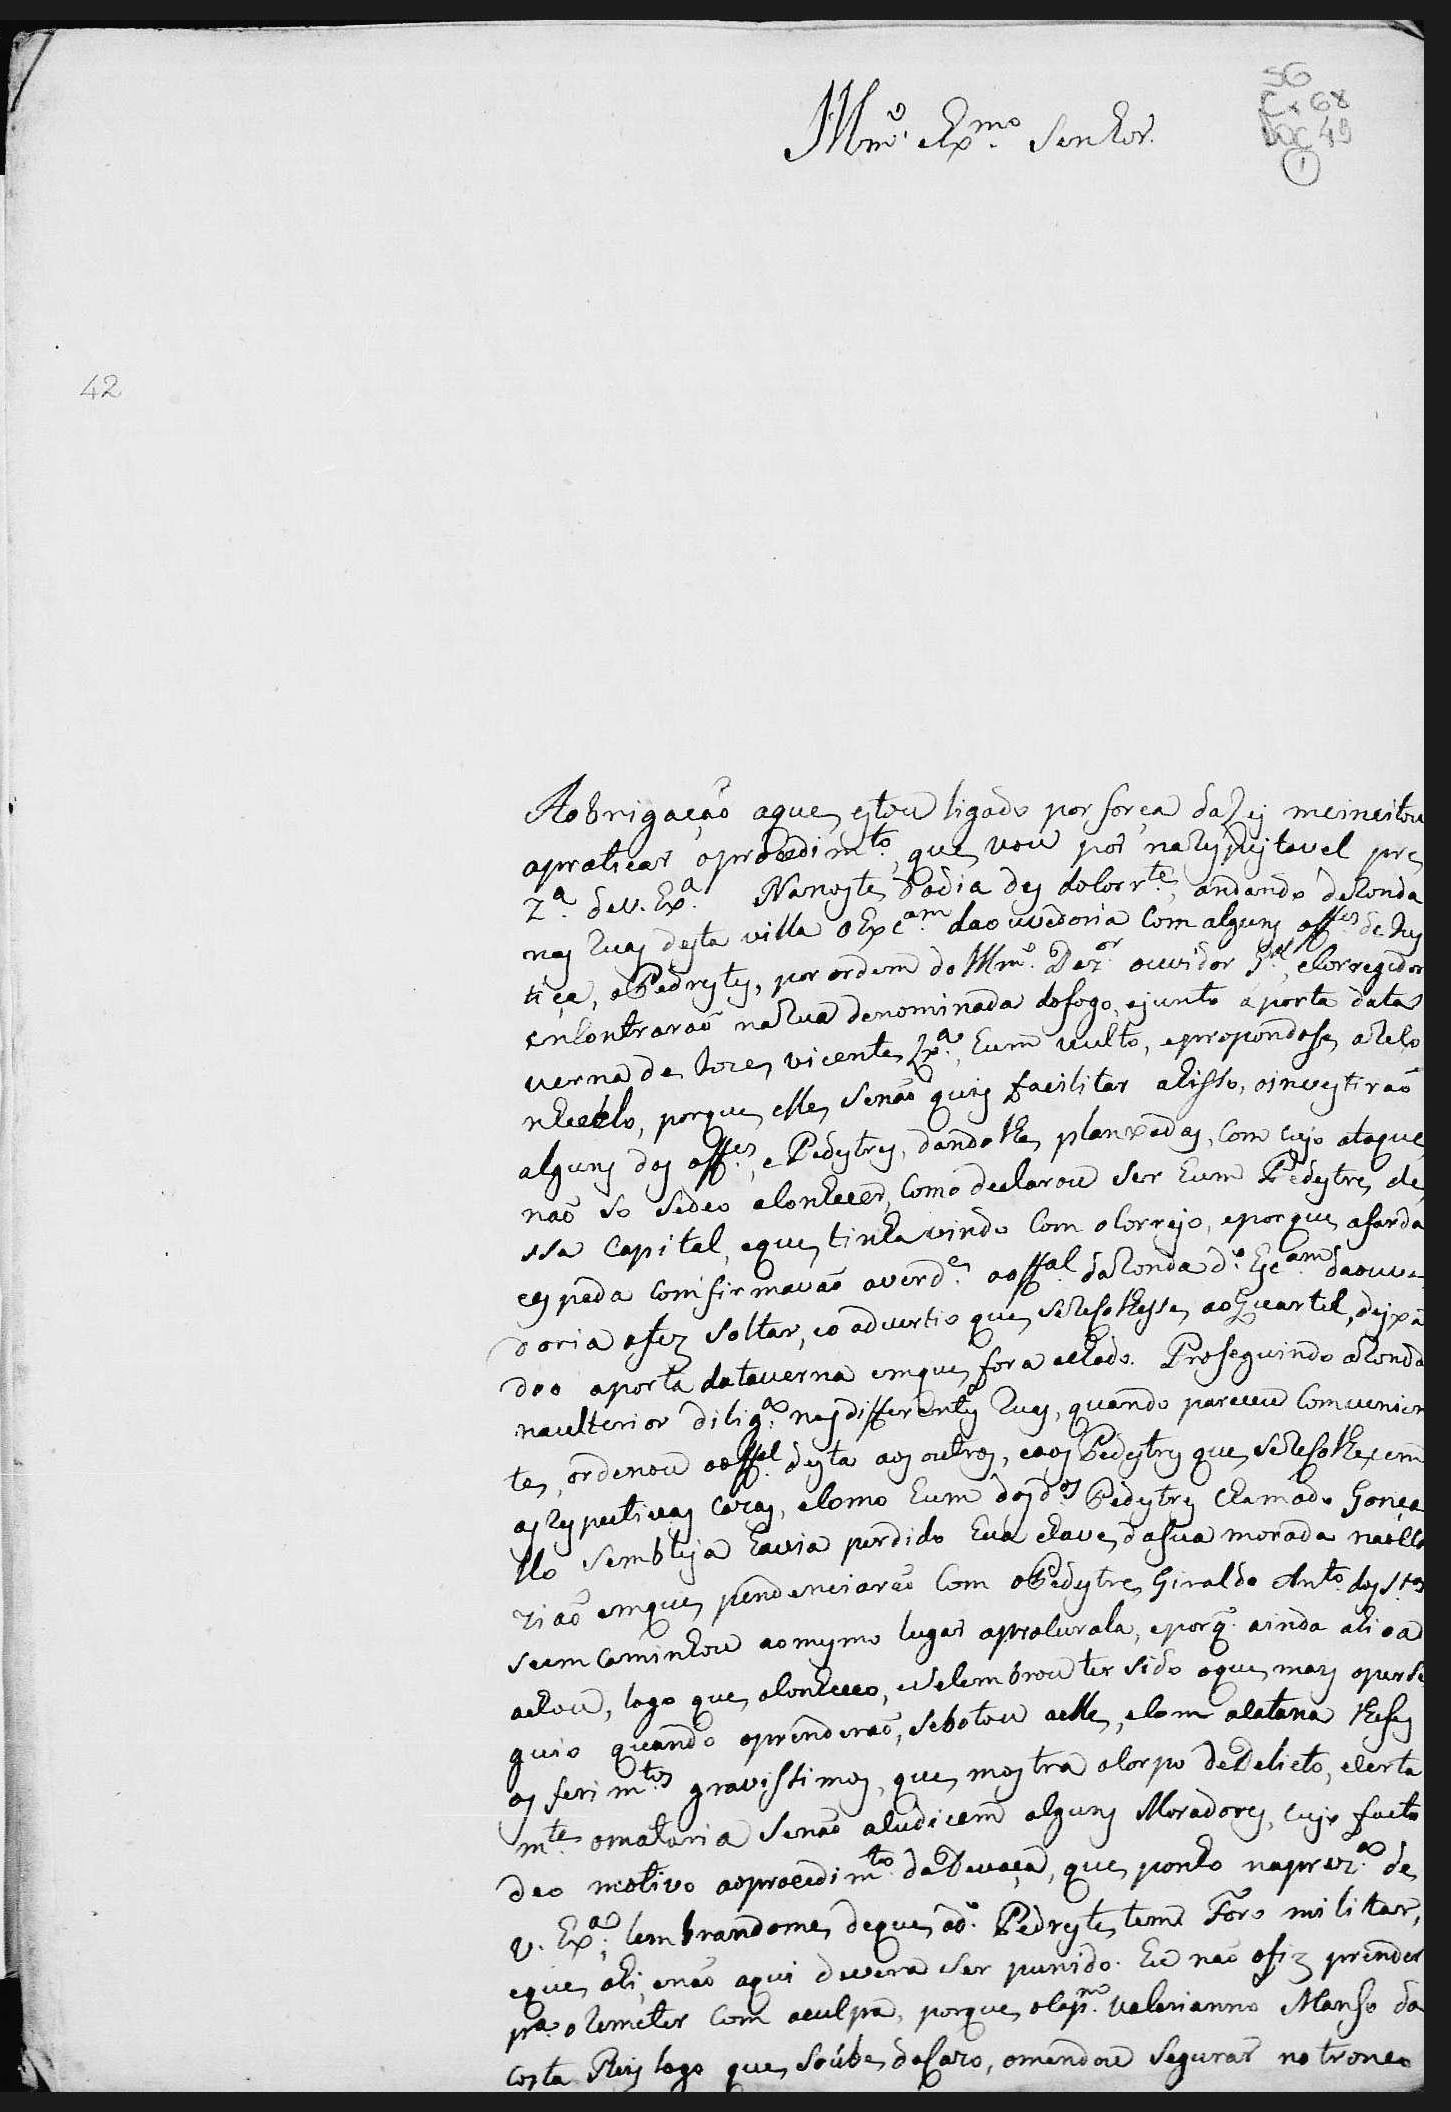 SG
Cx 68
Doc 49
1
Illmo. e Exmo. Senhor.
42
A obrigação a que estou ligado por força da Ley me incitou
a praticar o procedimto. que vou por na respeitavel pre
za. de V. Exa. Na noyte do dia des do corrte. andando de Ronda
nas Ruas desta villa o Escam. da ouvedoria com alguns offes. de Jus
tiça, e Pedrestes, por ordem do Illmo. Dezor. ouvidor Gal. e Corregedor
encontrarão na Rua denominada do fogo, e junto a porta da ta
verna de Joze Vicente Lxa. hum vulto, e propondosse a Reco
nhecelo, porque elle se não quis facilitar a hisso, o investirão
alguns dos offes. e Pedestres, dandolhe planxadas, com cujo ataque
não so se deo a conhecer, como declarou ser hum Pedestre de
ssa Capital, e que tinha vindo com o Correjo, e porque a farda
e espada comfirmavão a verde. o offal. da Ronda do. Escam. da ouve
doria o fez soltar, e o advertio que se Recolhesse ao Quartel, deixan
doo a porta da taverna em que fora achado. Proseguindo a Ronda
na ulterior diliga. nas differentes Ruas, quando pareceu comvenien
te, ordenou o offal. desta aos outros, e aos Pedestres que se Recolhecem
as Respectivas cazas, e como hum dos dos. Pedestres chamado Gonça
llo Sembleja havia perdido hũa chave da sua morada na occa
zião em que pendenciarão com o Pedestre Giraldo Anto. dos Stos.
se emcaminhou ao mesmo lugar a procurala, e porq. ainda ali o a
achou, logo que o conheceo, e se lembrou ter sido o que mais o perse
guio quando o prenderão, se botou a elle, e com a catana lhe fez
os ferimtos. gravissimos, que mostra o Corpo de Delicto, e certa
mte. o mataria se não acudicem alguns Moradores, cujo facto
deo motivo ao procedimto. da Devaça, que ponho na preza. de
V. Exa. lembrandome de que o do. Pedreste tem Foro militar,
e que ahi, e não aqui devera ser punido. Eu não o fiz prender
pa. o Remeter com a culpa, porque o Capm. Valerianno Manso da
Costa Reis logo que soube do Cazo, o mandou segurar no tronco